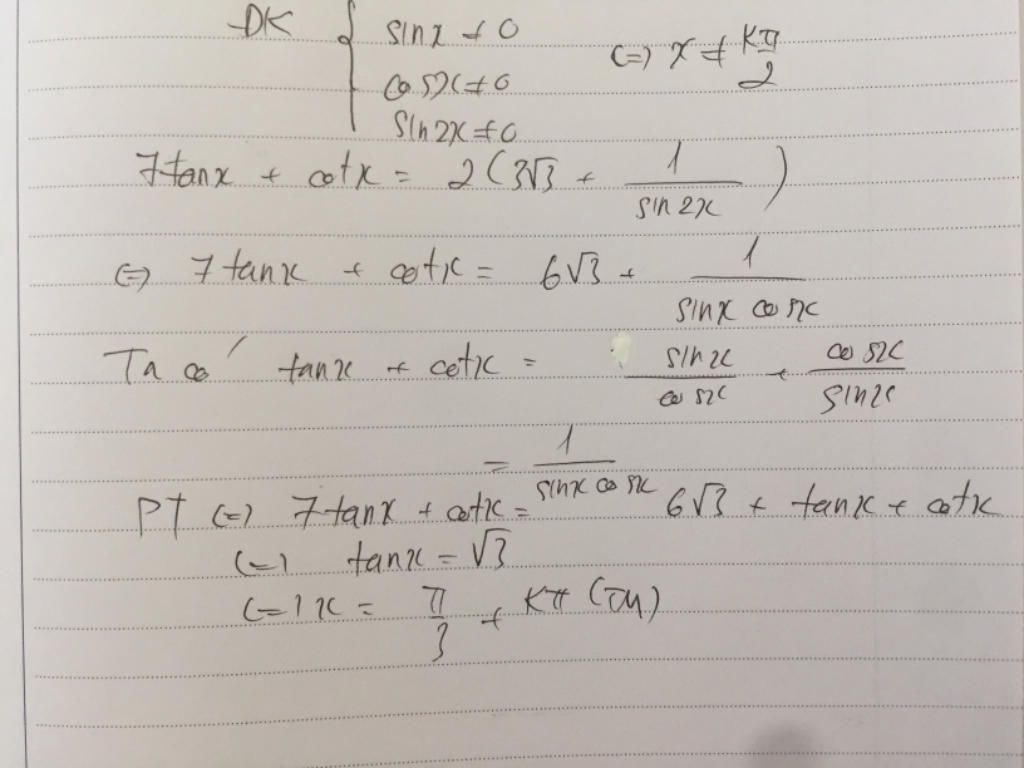 ĐK { sinx ≠ 0
cosx ≠ 0 <=> x ≠ kπ/2
sin2x ≠ 0
7tanx + cotx = 2(3√3 + 1/sin2x)
<=> 7tanx + cotx = 6√3 + 1/sinx cosx
Ta có tanx + cotx = sinx/cosx + cosx/sinx
= 1/sinx cosx
PT <=> 7tanx + cotx = 6√3 + tanx + cotx
<=> tanx = √3
<=> x = π/3 + kπ (TM)